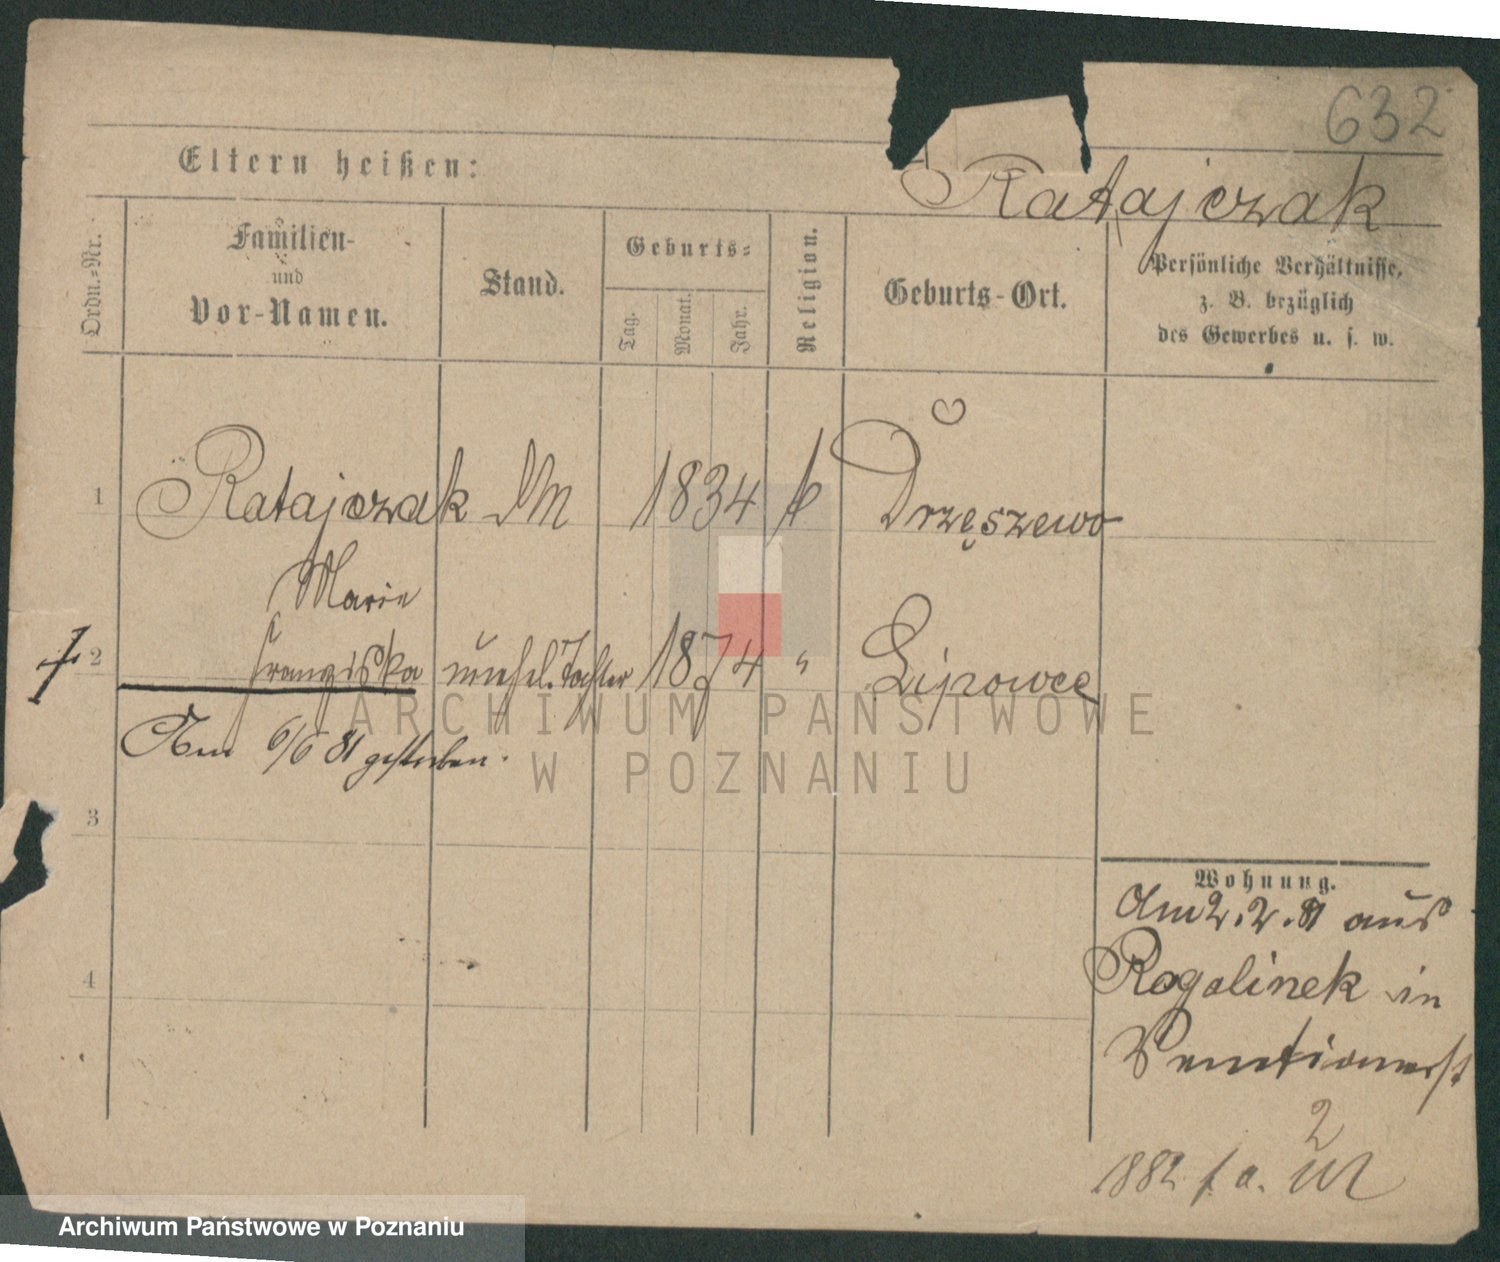 632
Eltern heißen:
Ratajczak
Ordn.-Nr.
Familien-
und
Vor-Namen.
Stand.
Geburts-
Tag.
Monat.
Jahr.
Religion.
Geburts-Ort.
Persönliche Verhältnisse,
z. B. bezüglich
des Gewerbes u. s. w.
1 Ratajczak 1834 k Drzęszewo
Marie
2 Franziska unehel. Tochter 1874 " Lipowce
Am 6/6 81 gestorben.
3
4
Wohnung.
Am 2.2.81 aus
Rogalinek in
2
1882 f. a.
ARCHIWUM PAŃSTWOWE
W POZNANIU
Archiwum Państwowe w Poznaniu